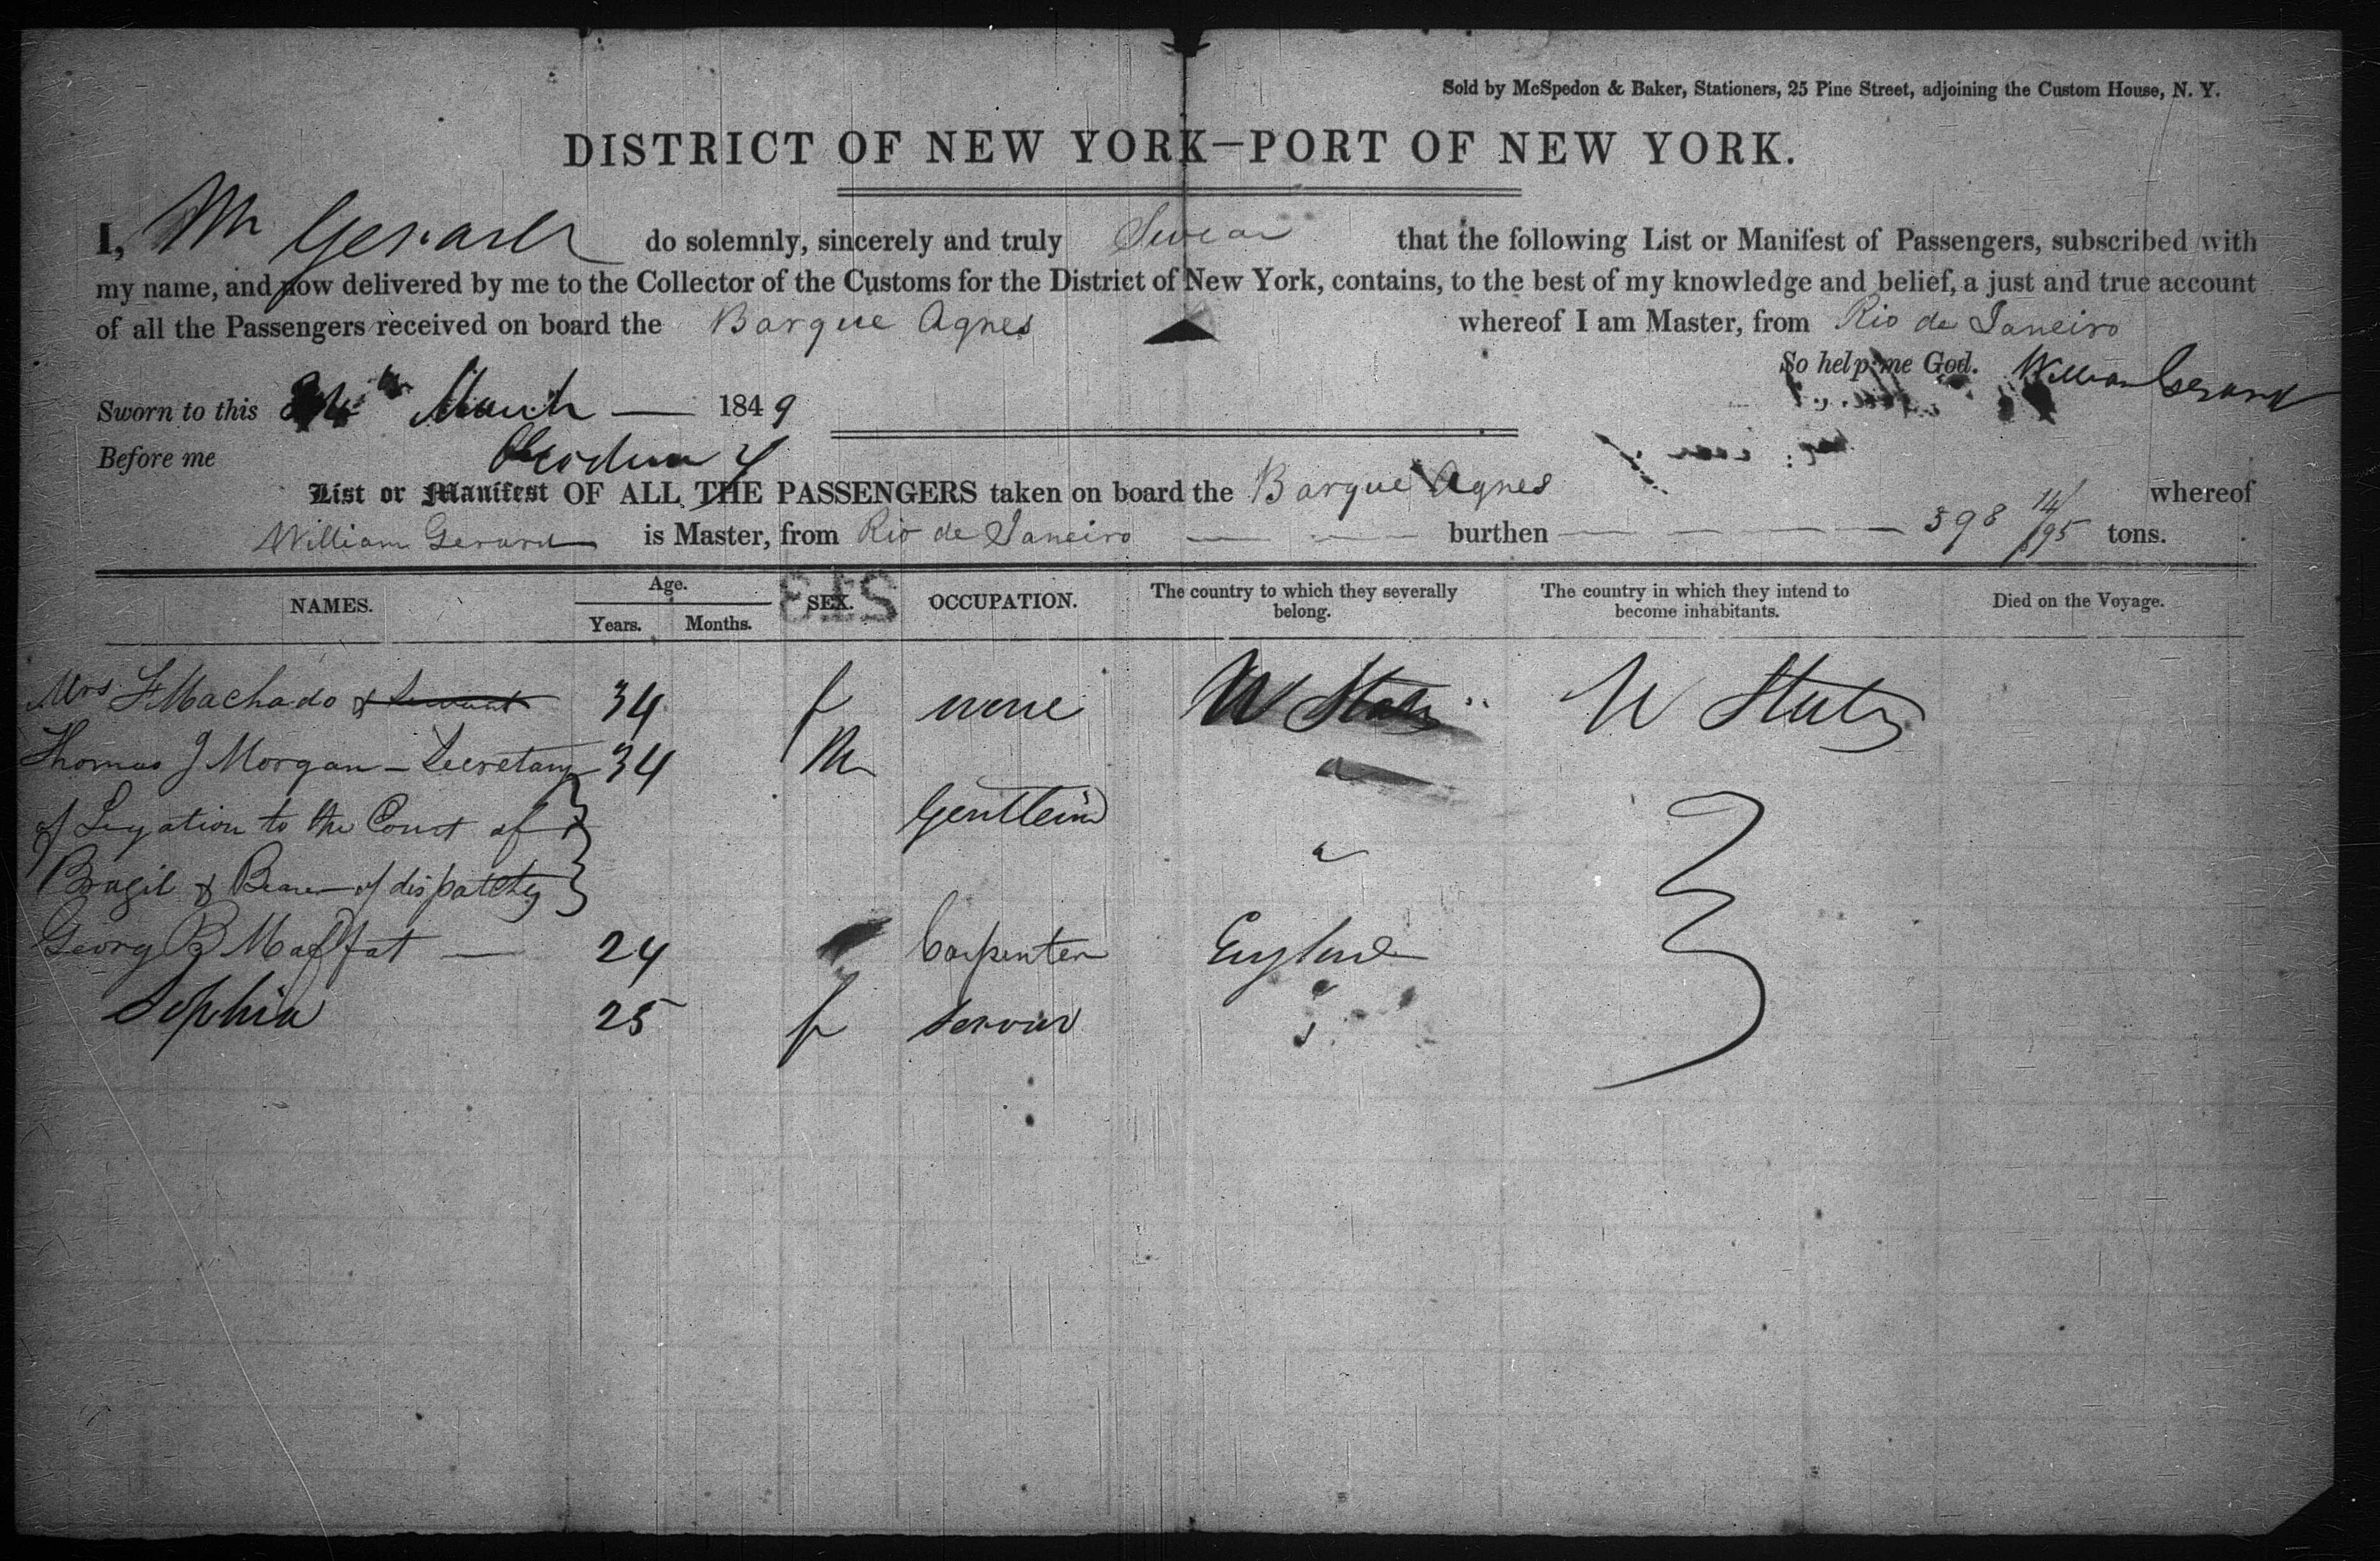 Sold by McSpedon & Baker, Stationers, 25 Pine Street, adjoining the Custom House, N. Y.
DISTRICT OF NEW YORK—PORT OF NEW YORK.
I, Wm Gerard do solemnly, sincerely and truly Swear that the following List or Manifest of Passengers, subscribed with
my name, and now delivered by me to the Collector of the Customs for the District of New York, contains, to the best of my knowledge and belief, a just and true account
of all the Passengers received on board the Barque Agnes whereof I am Master, from Rio de Janeiro
So help me God. William Gerard
Sworn to this March — 1849
Before me
List or Manifest OF ALL THE PASSENGERS taken on board the Barque Agnes whereof
William Gerard is Master, from Rio de Janeiro burthen 398 14/95 tons.
NAMES. Age. Years. Months. SEX. OCCUPATION. The country to which they severally belong. The country in which they intend to become inhabitants. Died on the Voyage.
Mrs F Machado & Servant 34 f none U States U States
Thomas J Morgan – Secretary 34 M "
of Legation to the Court of Gentleman
Brazil & Bearer of dispatches "
Georg B Maffat — 24 Carpenter England
Sophia 25 f Servant "